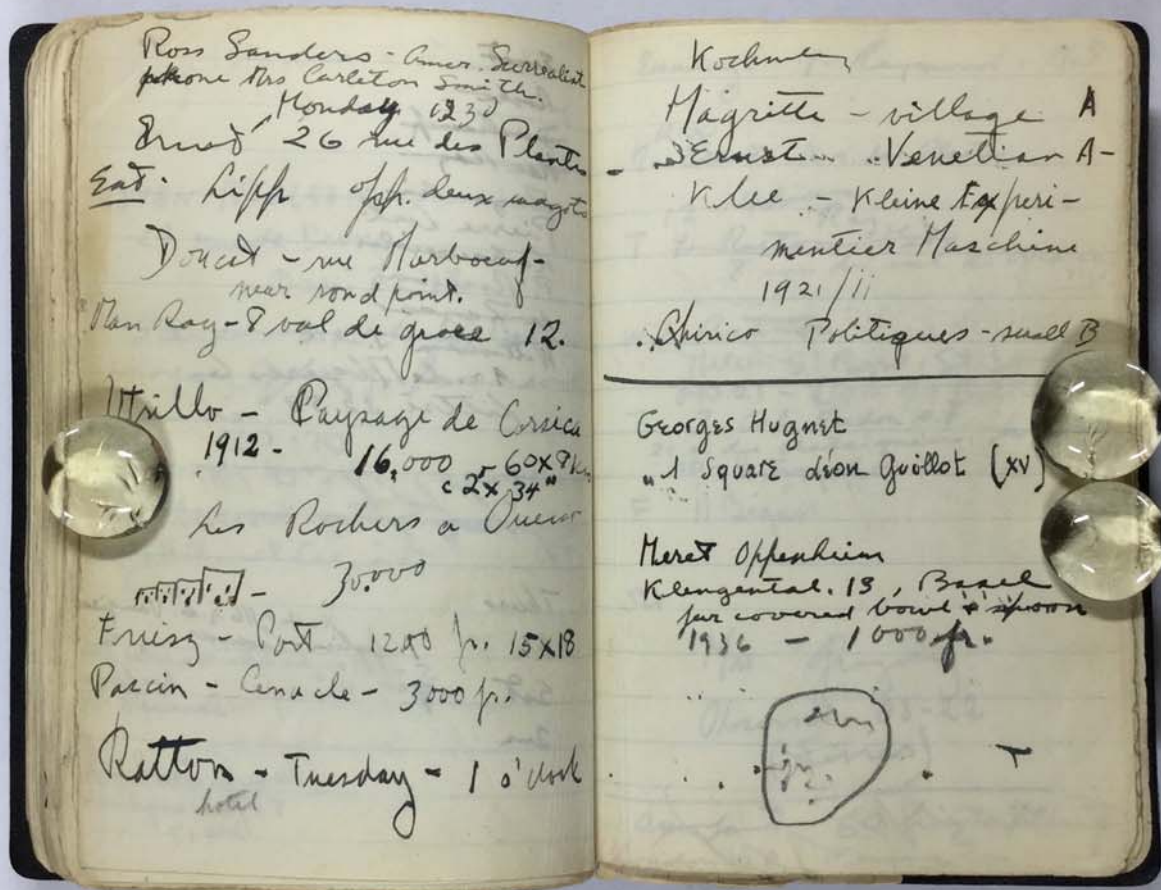 Ross Sanders - Amer. Surrealist
phone Mrs Carleton Smith.
Monday 1230
Ernst 26 rue des Plantes
Eat. Lipp opp. deux magots
Doucet - rue Marboeuf -
near rond point.
Man Ray - 8 val de grace 12.
Utrillo - Paysage de Corsica
1912 - 16,000 - 60x8
c 2 x 34"
Les Rochers a
- 30.000
Friesz - Port 1200 fr. 15x18
Pascin - Cenacle - 3000 fr.
Ratton - Tuesday - 1 o'clock
hotel
Magritte - village A
Ernst Venetian A-
Klee - Kleine Experi-
mentier Maschine
1921/11
Chirico Politiques - small B
Georges Hugnet
1 Square Léon Guillot (XV)
Meret Oppenheim
Klengental. 13, Basel
fur covered bowl + spoon
1936 - 1000 fr.